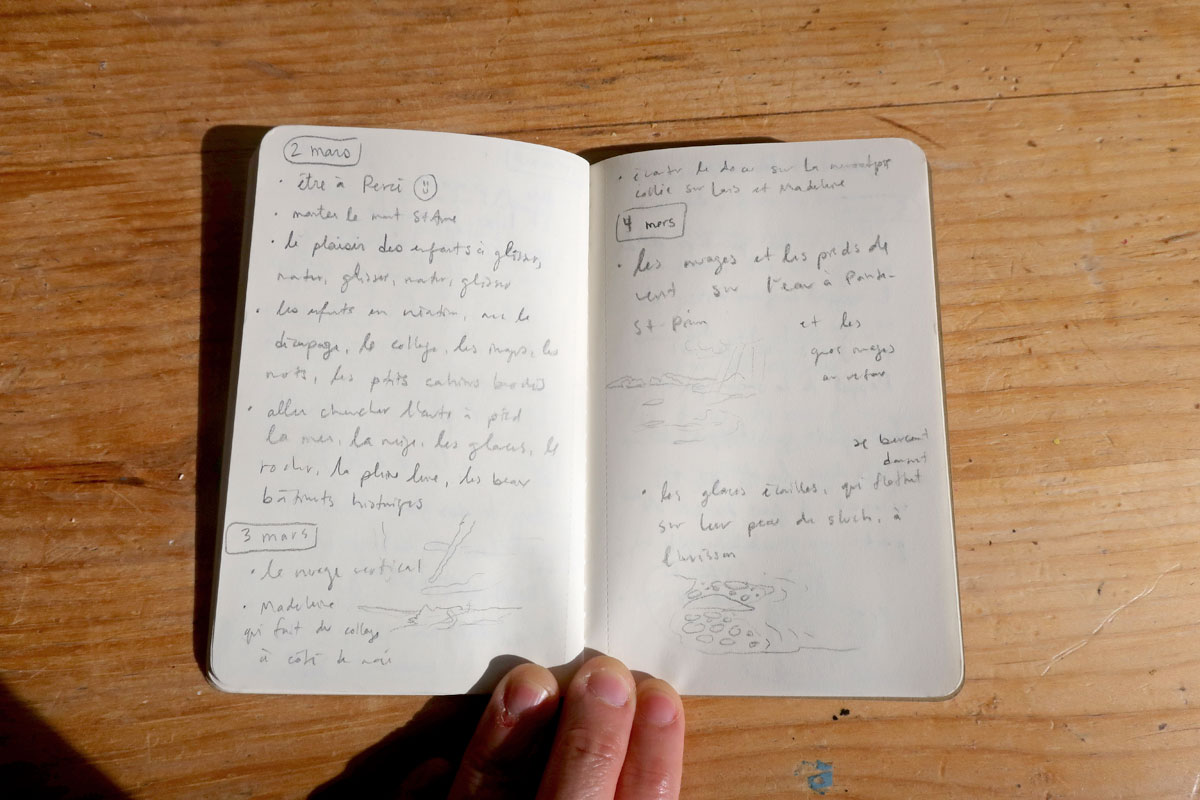 2 mars
• être à Percé
• monter le mont Ste Anne
• le plaisir des enfants à glisser,
monter, glisser, monter, glisser
• les enfants en création, avec le
découpage, le collage, les images, les
mots, les petits cahiers brodés
• aller chercher l'auto à pied
la mer, la neige, les glaces, le
rocher, la pleine lune, les beaux
bâtiments historiques
3 mars
• le nuage vertical
• Madeleine
qui fait du collage
à côté de moi
• sur la
collée sur Loïs et Madeleine
4 mars
• les nuages et les pieds de
vent sur l'eau à
St-
et les
gros nuages
au retour
se berçant
• les glaces écailles, qui flottent
sur leur peau de sluch, à
l'unisson